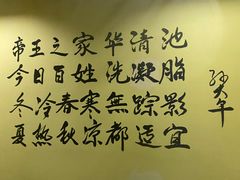 帝王之家华清池
今日百姓洗凝脂
冬冷春寒無踪影
夏热秋凉都适宜
孙大午